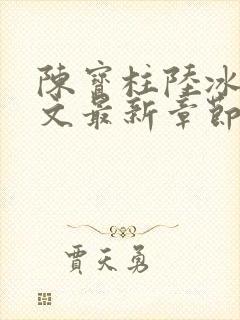 陳寶柱陸冰
文最新章節
賈天勇